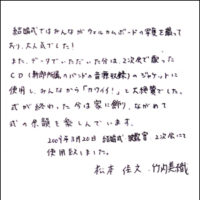 結婚式ではみんながウェルカムボードの写真を撮って
おり、大人気でした!
また、データでいただいた分は、2次会で配った
CD(新郎所属のバンドの音源収録)のジャケットに
使用し、みんなから「カワイイ!」と大絶賛でした。
式が終わった今は家に飾り、ながめて
式の余韻を楽しんでいます。
2009年3月20日 結婚式 披露宴 2次会にて
使用致しました。
松本 佳文 竹内美織